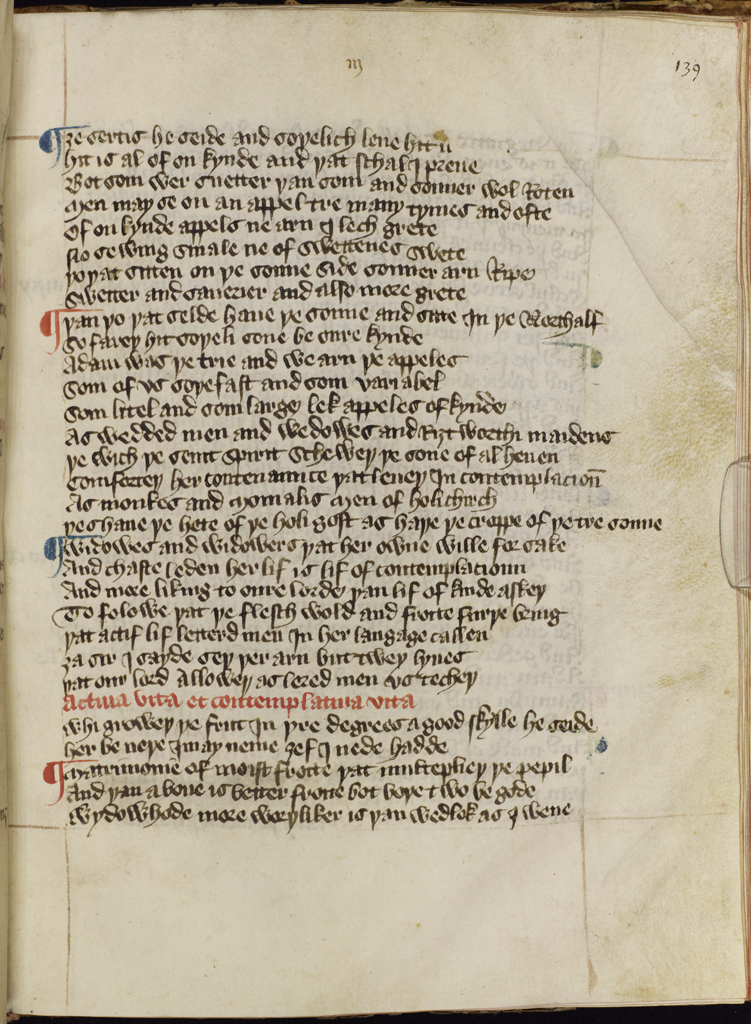 m
139
ȝe sertis he seide and soþelich leue hit u
hit is al of on kynde and þat schal I preue
Bot som wer swetter þan som and sonner wol Roten
Men may se on an appel tre many tymes and ofte
Of on kynde appels ne arn I lech grete
No sewing smale ne of swettenes swete
þo þat sitten on þe sonne side sonner arn Ripe
Swetter and sauerier and also more grete
þan þo þat selde haue þe sonne and sitte In þe Northalf
So fareþ hit soþeli sone be oure kynde
Adam was þe trie and we arn þe appeles
Som of vs soþefast and som variabel
Som litel and som large lek appeles of kynde
As wedded men and wedowes and riȝt worthi maidens
þe wich þe seint spirit scheweþ þe sone of al heuen
Comforteþ her contenaunce þat leueþ In contemplacioñ
As monkes and Monialis Men of holichirch
þes haue þe hete of þe holi gost as haþe þe croppe of þe tre sonne
Widowes and widowers þat her owne wille forsake
And chaste leden her lif is lif of contemplacioun
And more liking to oure lorde þan lif of kinde askeþ
To folowe þat þe flesch wold and frotte furþe bring
þat actif lif letterd men In her langage callen
ȝa sir I sayde seþ þer arn but tweþ lyues
þat our lord alloweþ as lered men vs techeþ
Actiua vita et contemplatiua vita
Whi groweþ þe frut In þre degrees a good skylle he seide
her be neþe I may neme ȝef I nede hadde
Matrimonie of moist frotte þat multepliceþ þe pepil
And þan aboue is better frotte bot boþe two be gode
Wydowhode more worþliker is þan wedlok as I wene